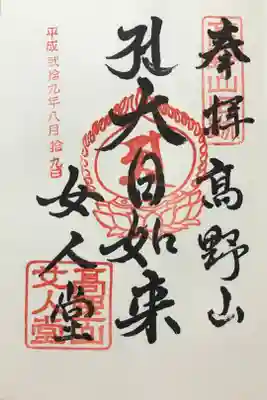 奉拝 高野山
大日如来
女人堂
平成貳拾九年八月拾九日
高野山
女人堂